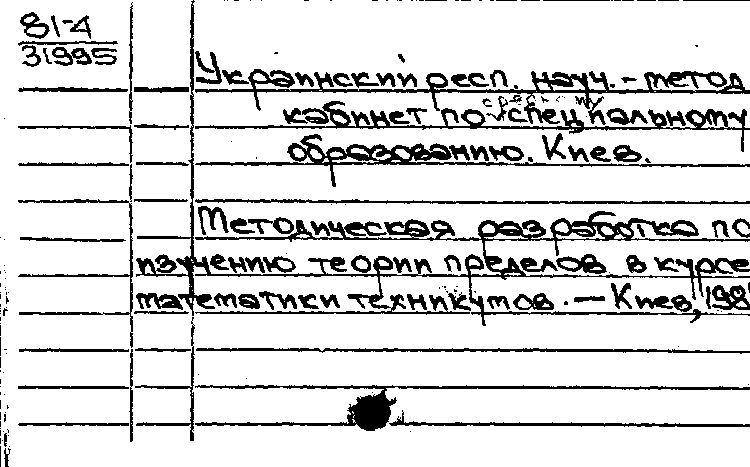 81-4
31995
Украинский респ. науч.-метод
среднему
кабинет по специальному
образованию. Киев.
Методическая разработка по
изучению теории пределов в курсе
математики техникумов. — Киев, 198